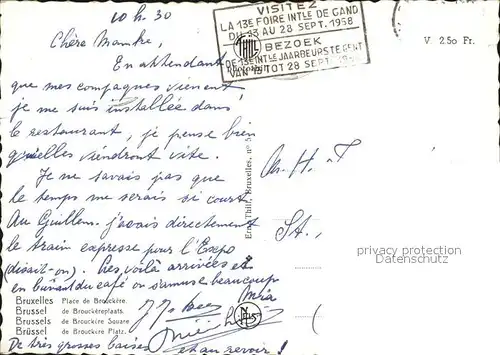 10 h. 30
Chère Mamke,
En attendant
que mes compagnes viennent
je me suis installée dans
le restaurant, je pense bien
qu'elles viendront vite.
Je ne savais pas que
le temps me serais si court
Au Guillem. j'avais directement
le train expresse pour l'Expo
(disait-on). Les voilà arrivées et
en buvant du café on s'amuse beaucoup
Mia
De très grosses baises et au revoir !
VISITEZ
LA 13E FOIRE INTLE DE GAND
DU 13 AU 28 SEPT. 1958
BEZOEK
DE 13E INTLE JAARBEURS TE GENT
VAN 13 TOT 28 SEPT. 1958
THILL
V 2.50 Fr.
Ern. Thill, Bruxelles, n° 5
privacy protection
Bruxelles Place de Brouckère.
Brussel de Brouckèreplaats.
Brussels de Brouckère Square
Brüssel de Brouckère Platz.